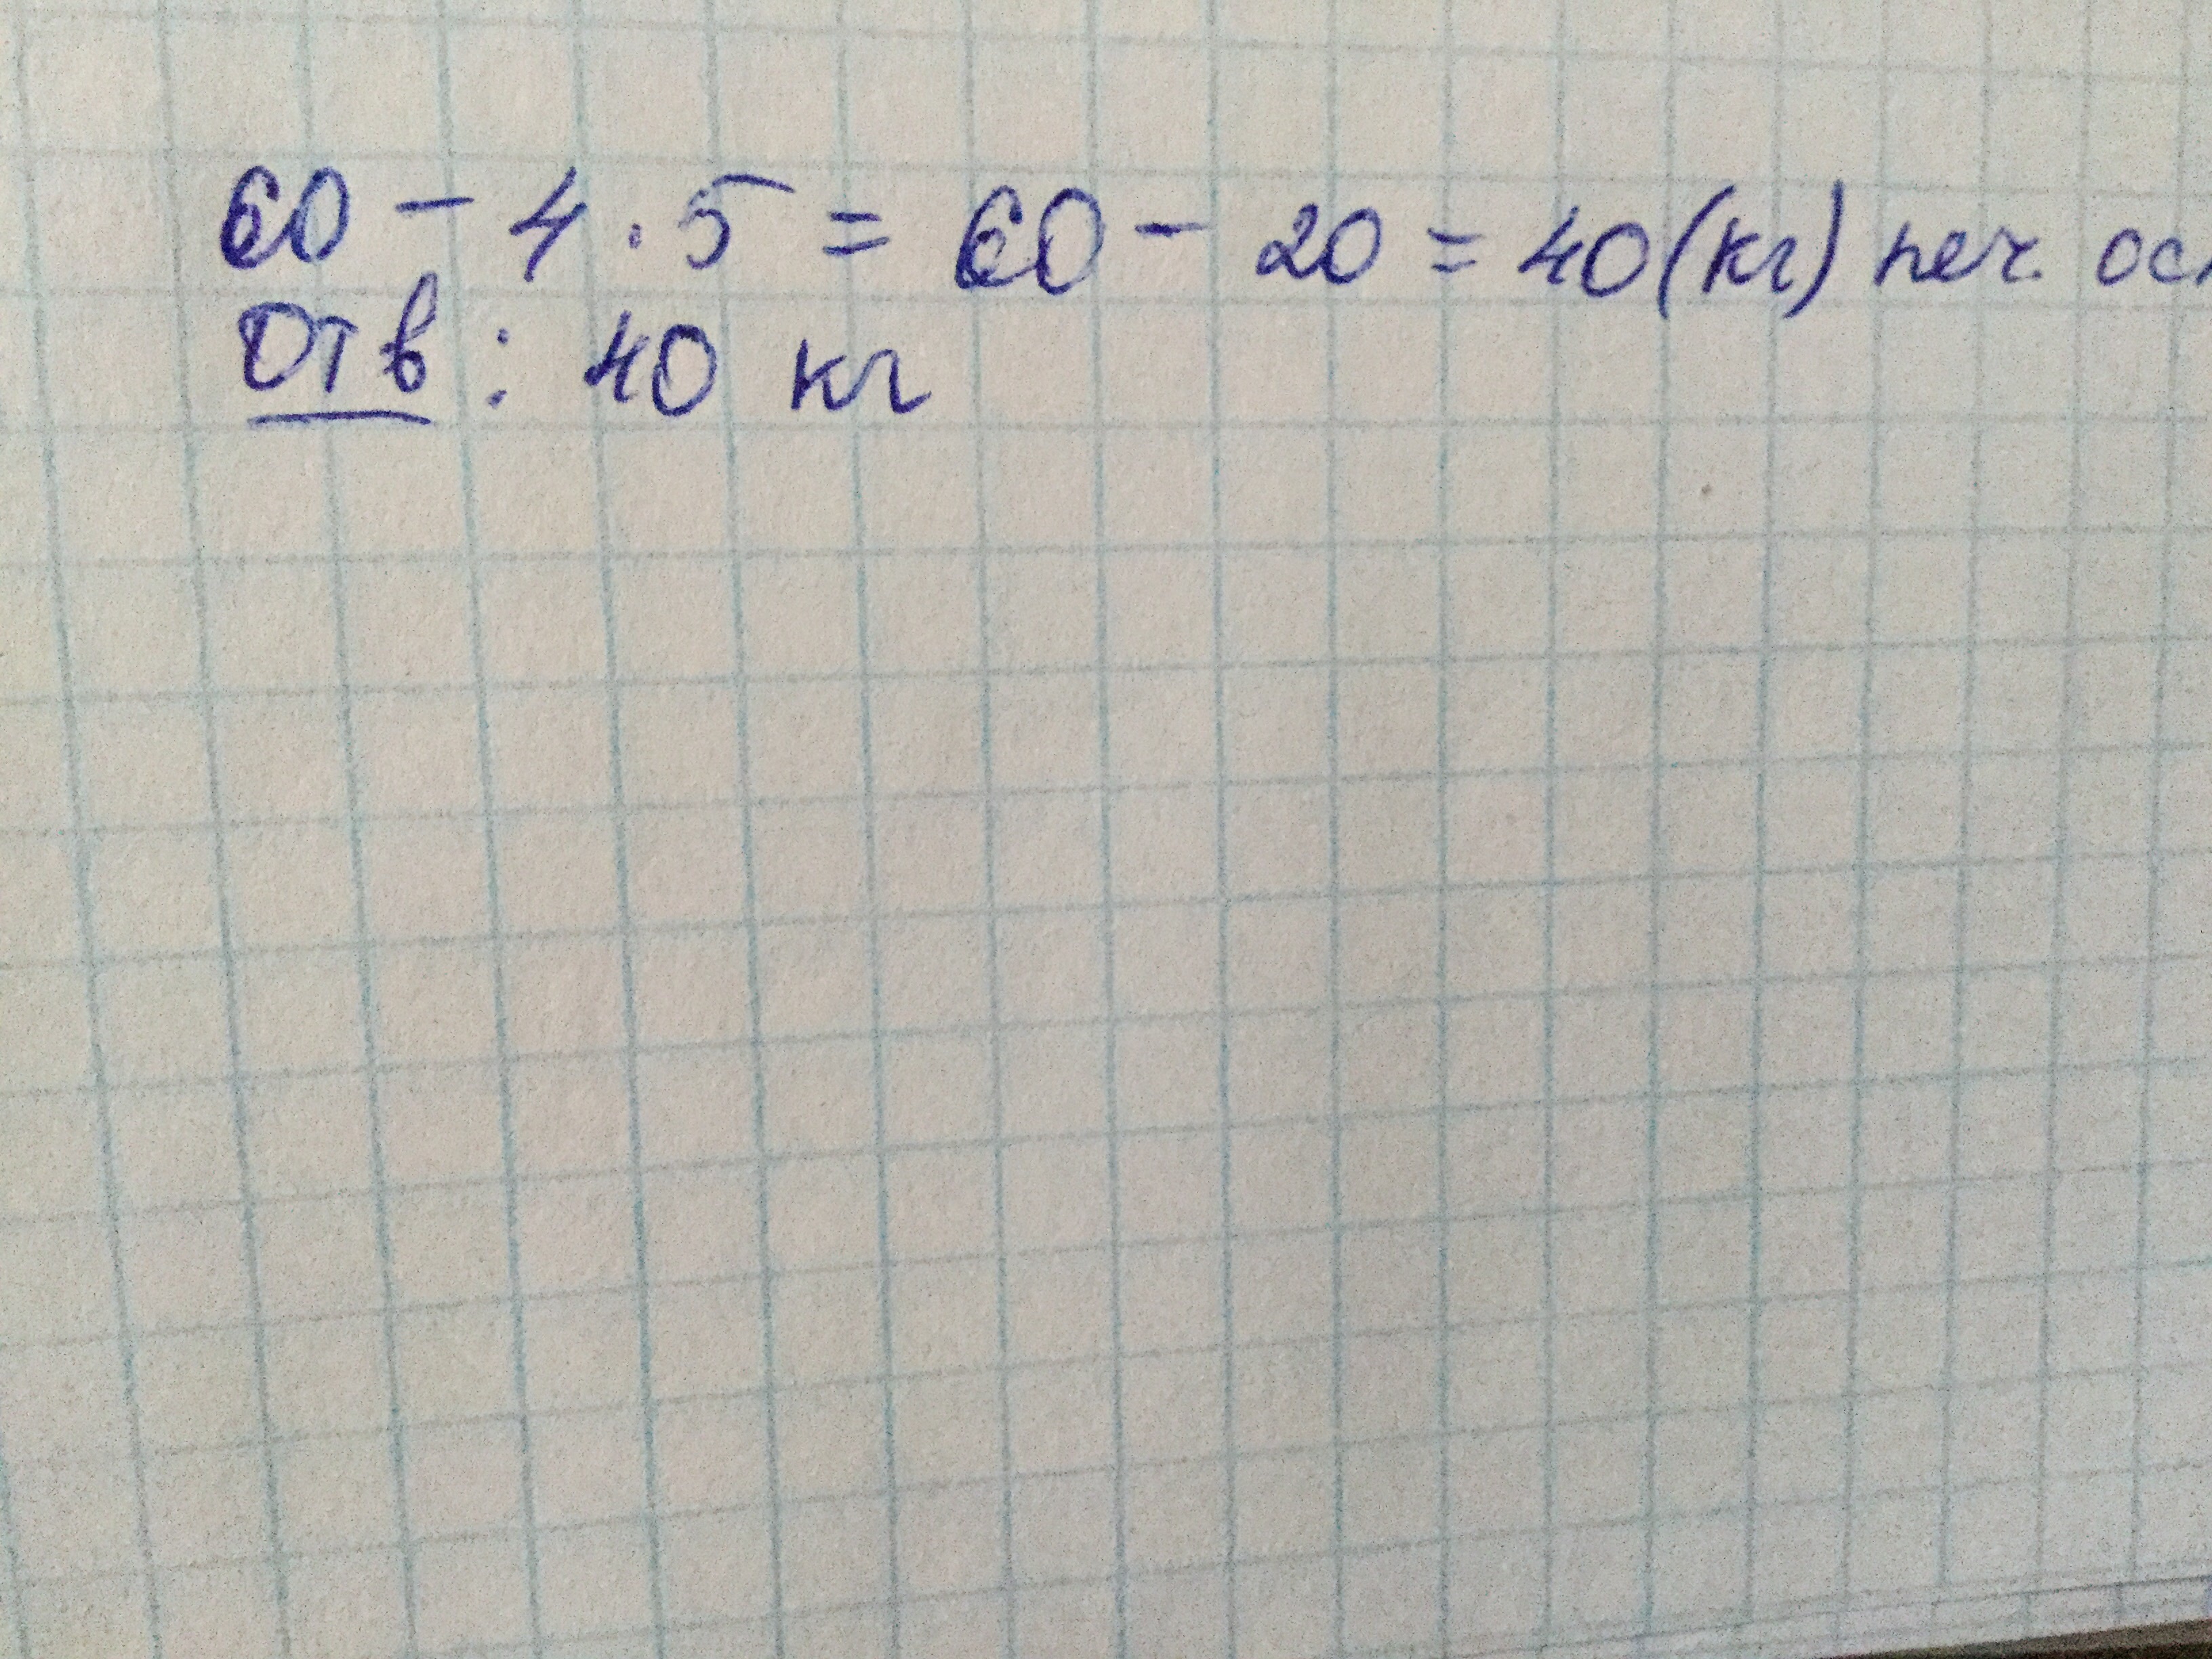 60 - 4 · 5 = 60 - 20 = 40 (кг) печ. ос
Отв : 40 кг